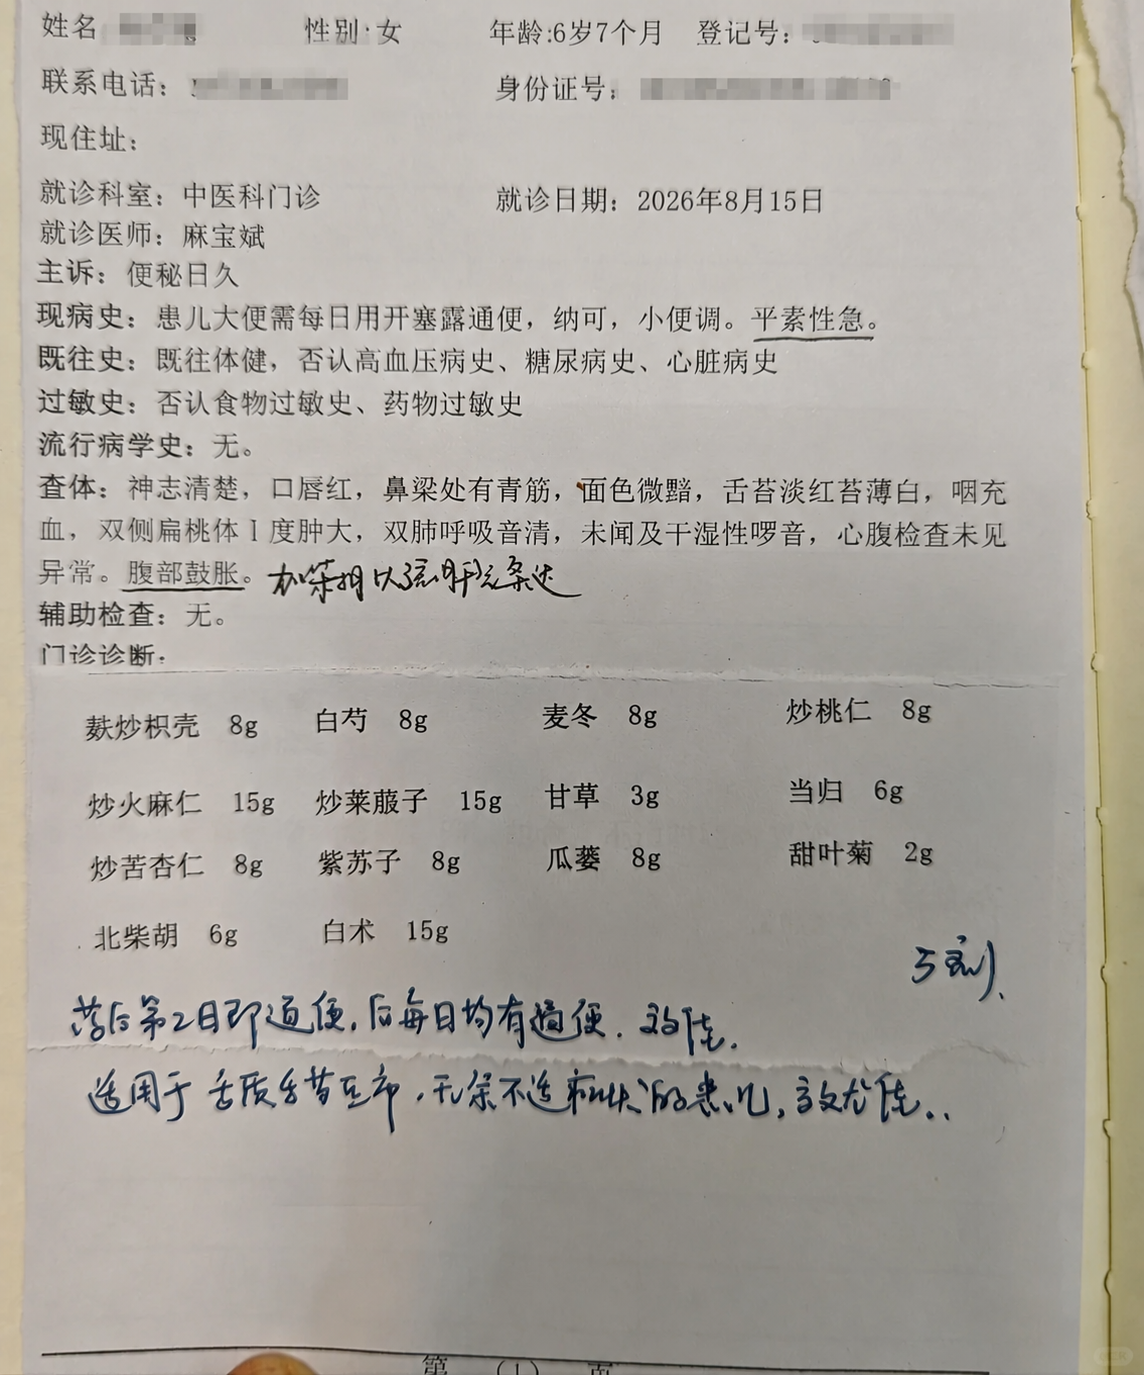 姓名 性别:女 年龄:6岁7个月 登记号:
联系电话: 身份证号:
现住址:
就诊科室:中医科门诊 就诊日期:2026年8月15日
就诊医师:麻宝斌
主诉:便秘日久
现病史:患儿大便需每日用开塞露通便,纳可,小便调。平素性急。
既往史:既往体健,否认高血压病史、糖尿病史、心脏病史
过敏史:否认食物过敏史、药物过敏史
流行病学史:无。
查体:神志清楚,口唇红,鼻梁处有青筋,面色微黯,舌苔淡红苔薄白,咽充
血,双侧扁桃体Ⅰ度肿大,双肺呼吸音清,未闻及干湿性啰音,心腹检查未见
异常。腹部鼓胀。
辅助检查:无。
门诊诊断:
麸炒枳壳 8g 白芍 8g 麦冬 8g 炒桃仁 8g
炒火麻仁 15g 炒莱菔子 15g 甘草 3g 当归 6g
炒苦杏仁 8g 紫苏子 8g 瓜蒌 8g 甜叶菊 2g
北柴胡 6g 白术 15g
5剂
药后第2日即通便,后每日均有通便.效佳.
适用于舌质舌苔正常,无余不适的患儿,效尤佳..
第 (1) 页